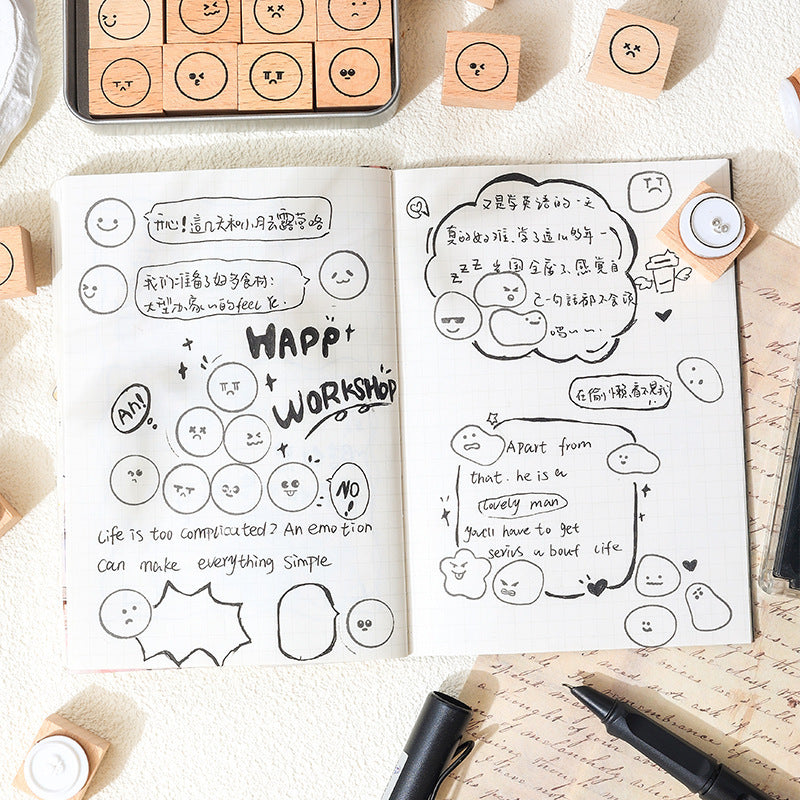 开心！這几天和小月去露营咯
我们准备了好多食材：
大型办家ㄦ的feel 化.
HAPP
WORKSHOP
Ah!
NO!
Life is too complicated? An emotion
can make everything simple
又是学英语的一天
真的好难、学了這么多年一
zzz 出国全废了、感觉自
己一句話都不会说
唱ㄦㄦ.
在偷懒,看不見我
Apart from
that. he is a
lovely man
you'll have to get
serivs a bout life